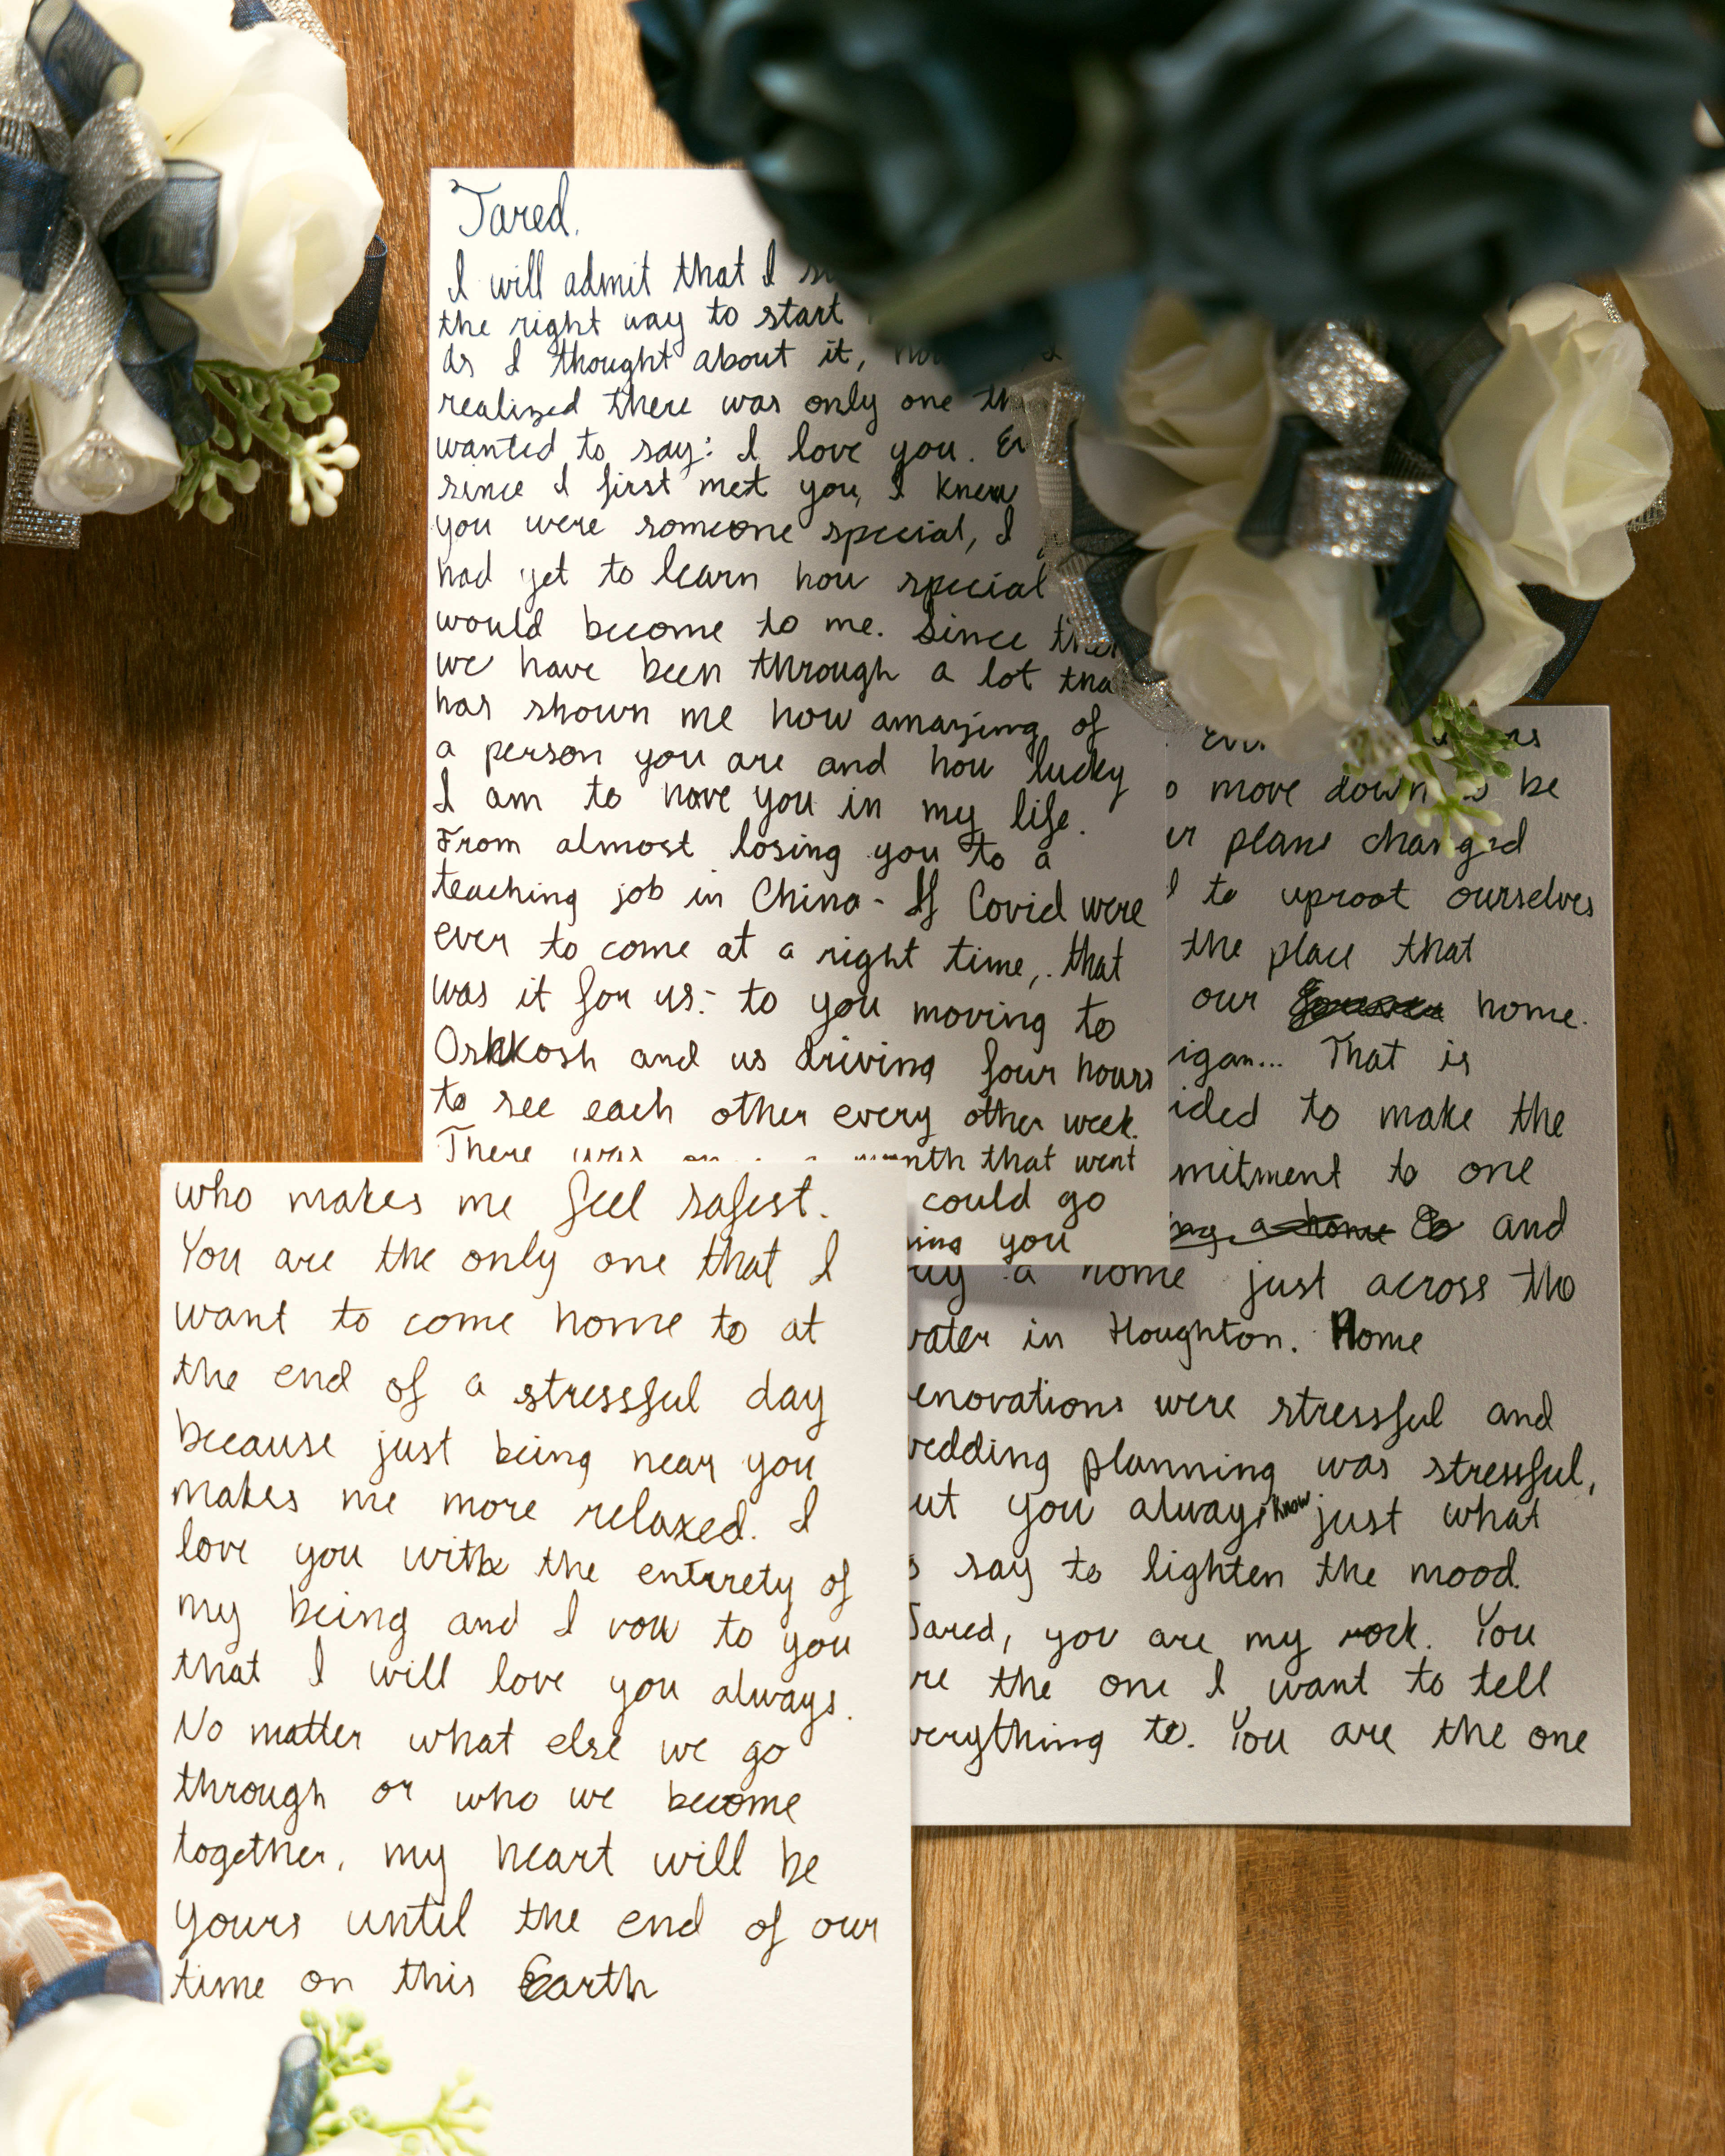 Jared,
I will admit that I
the right way to start
as I thought about it,
realized there was only one
wanted to say: I love you.
since I first met you, I knew
you were someone special, I
had yet to learn how special
would become to me. Since
we have been through a lot
has shown me how amazing of
a person you are and how lucky
I am to have you in my life.
From almost losing you to a
teaching job in China - If Covid were
ever to come at a right time, that
was it for us - to you moving to
Oshkosh and us driving four hours
to see each other every other week.
There was month that went
could go
you
move down be
plans changed
to uproot ourselves
the place that
our home.
That is
to make the
to one
and
a home just across the
in Houghton. Home
were stressful and
planning was stressful,
you always know just what
say to lighten the mood.
Jared, you are my rock. You
the one I want to tell
to. You are the one
who makes me feel safest.
You are the only one that I
want to come home to at
the end of a stressful day
because just being near you
makes me more relaxed. I
love you with the entirety of
my being and I vow to you
that I will love you always.
No matter what else we go
through or who we become
together, my heart will be
yours until the end of our
time on this Earth